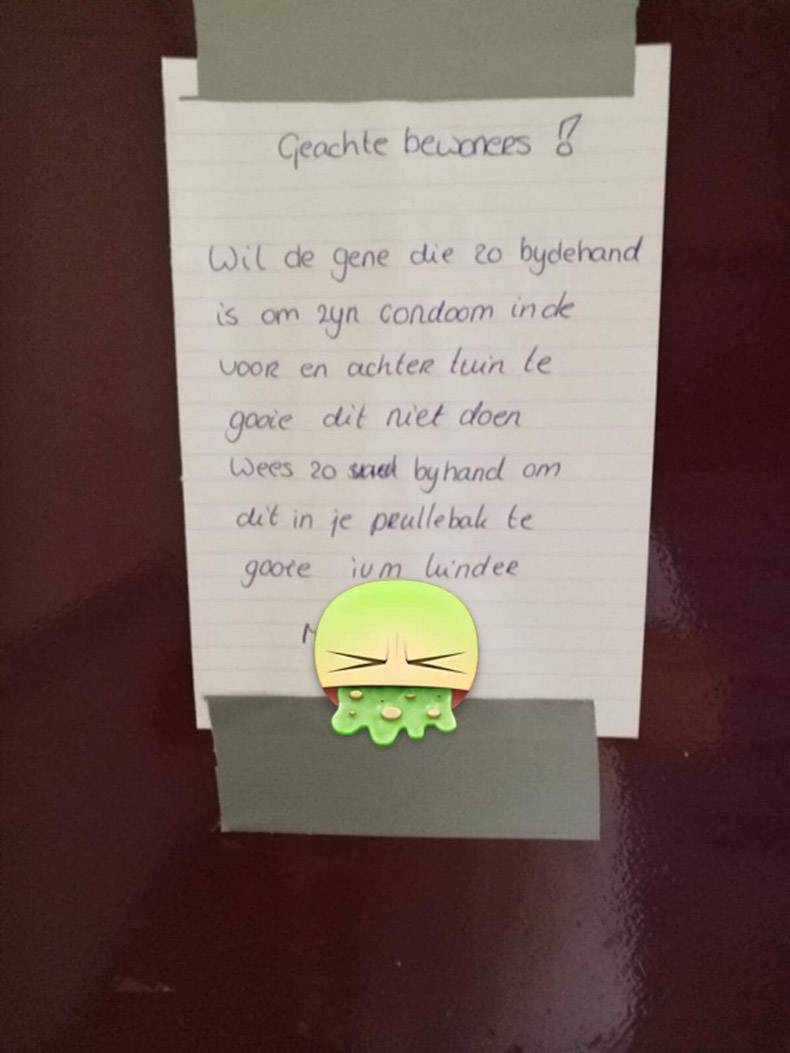 Geachte bewonees !
Wil de gene die zo bydehand
is om zyn condoom in de
voor en achter tuin te
gooie dit niet doen
Wees zo byhand om
dit in je peullebak te
gooie ivm kindee